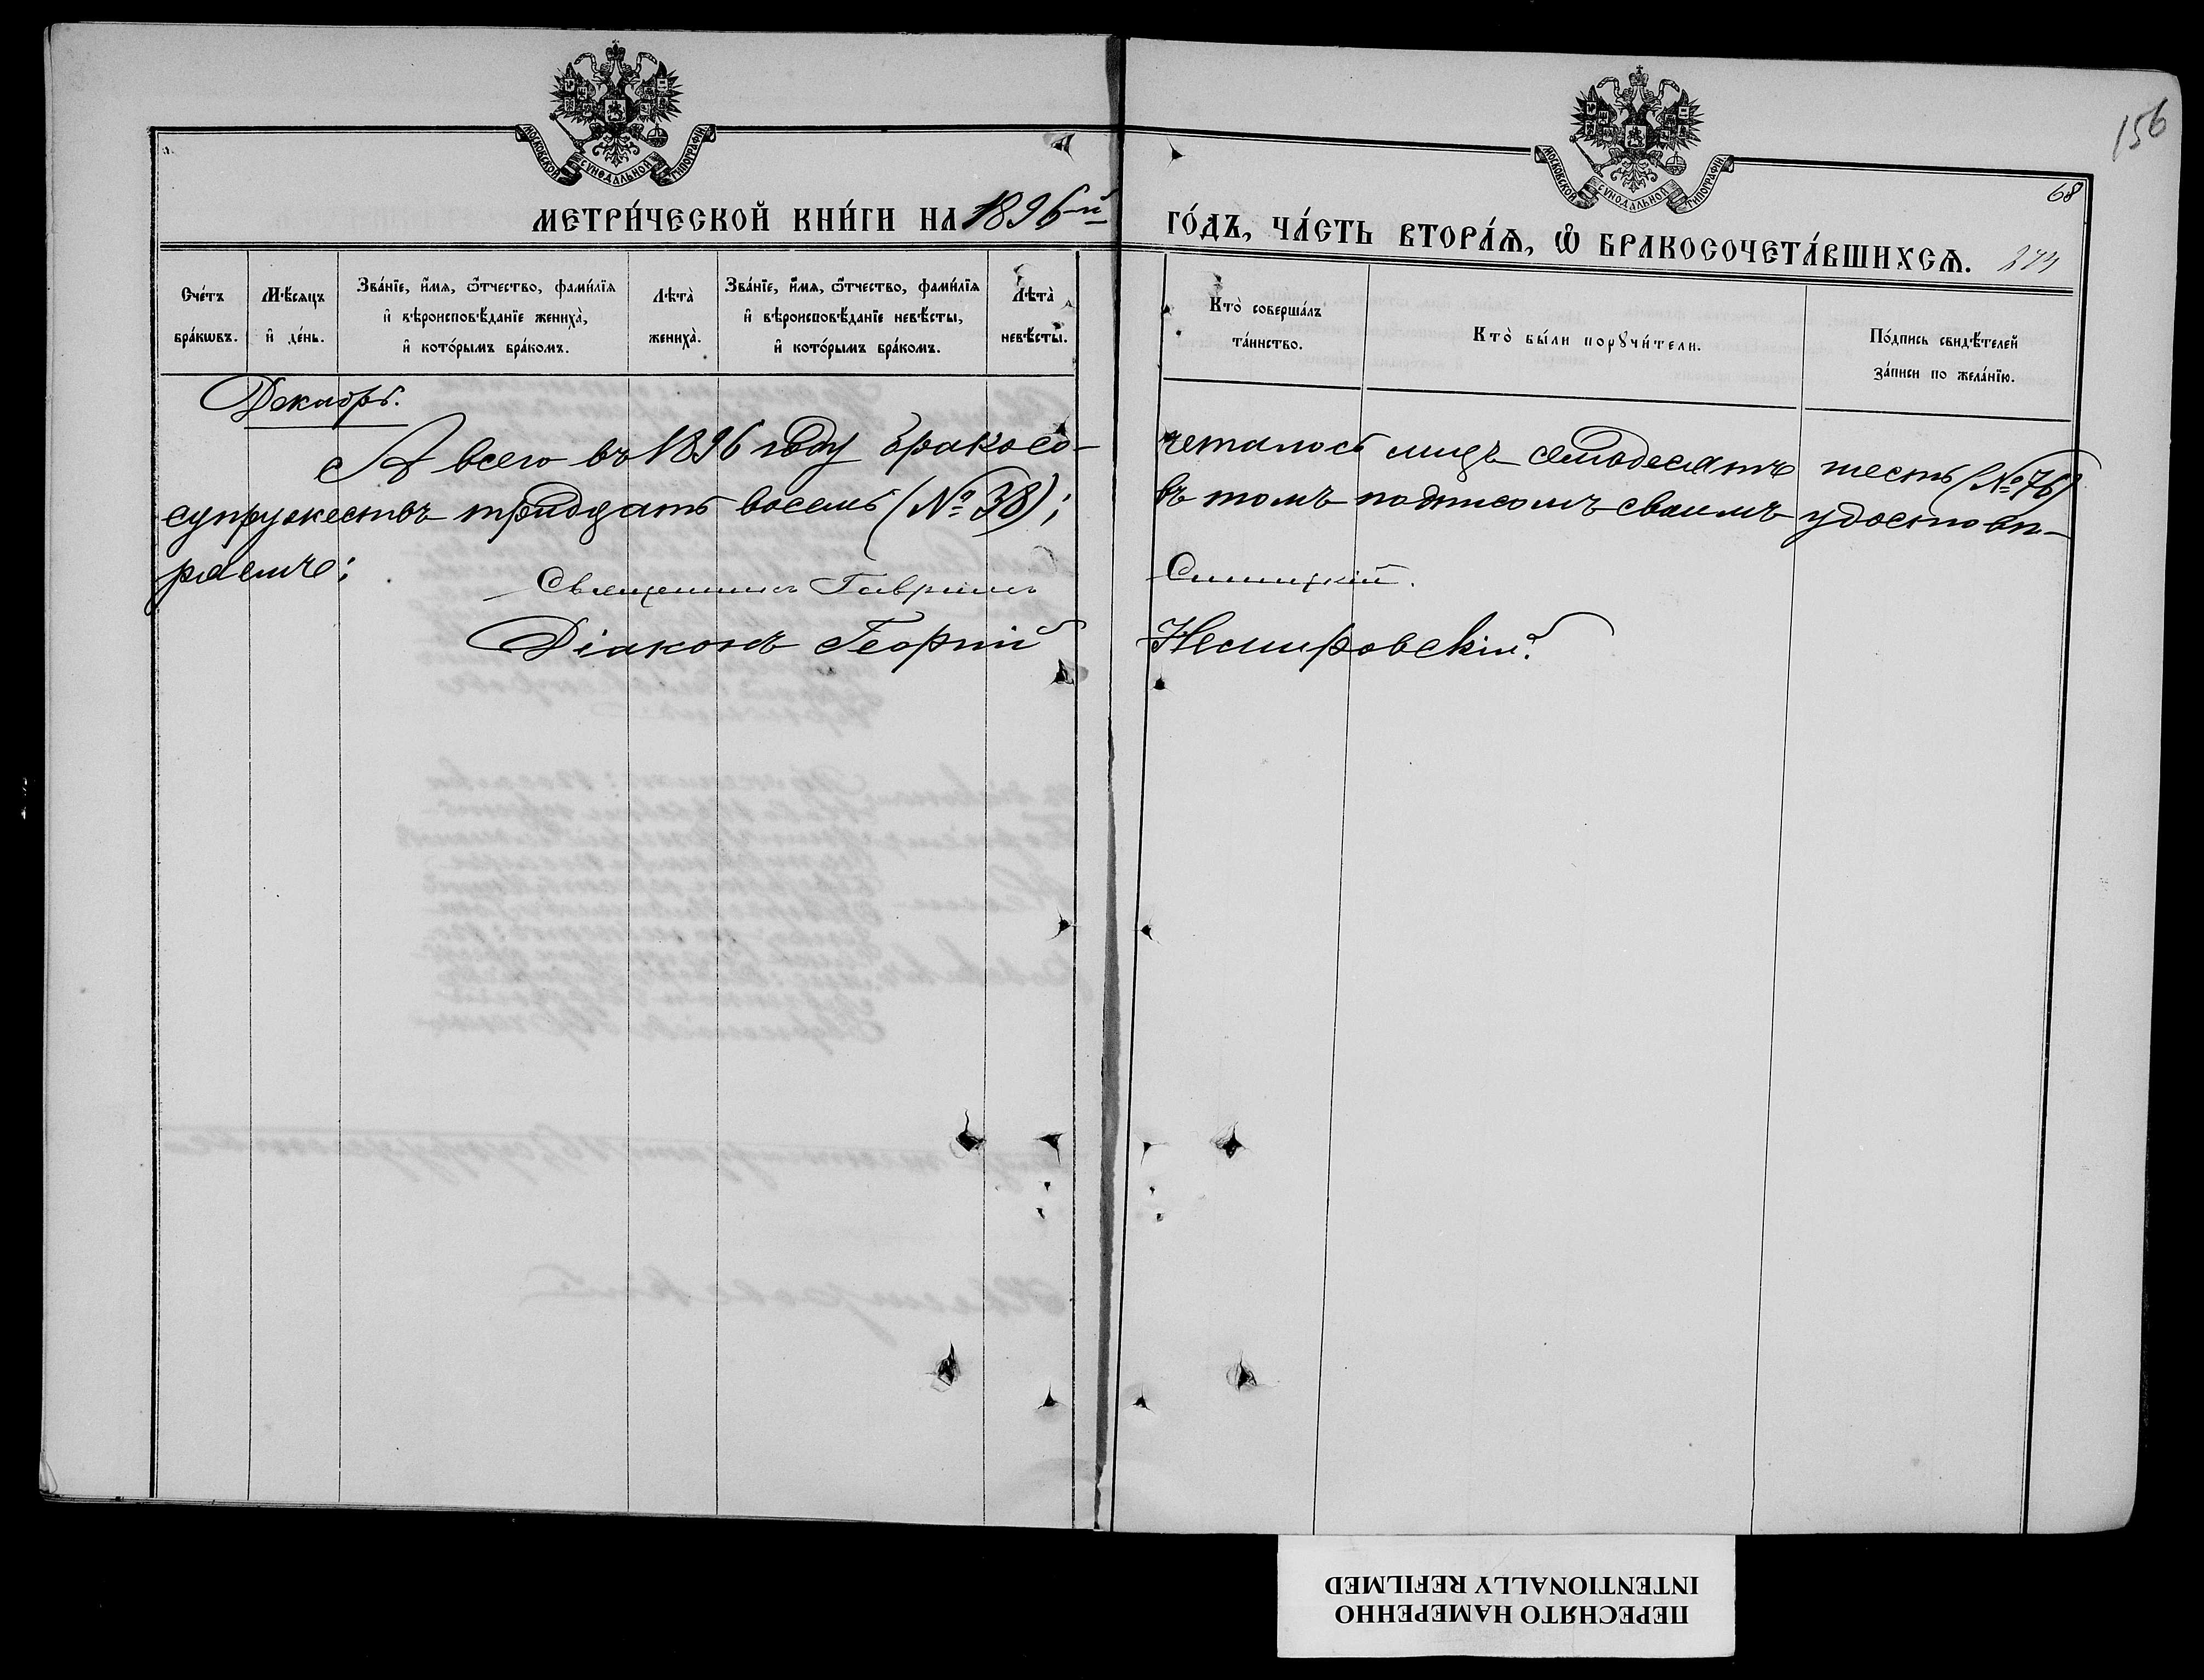 156
МОСКОВСКОЙ СѴНОДАЛЬНОЙ ТИПОГРАФІИ
МОСКОВСКОЙ СѴНОДАЛЬНОЙ ТИПОГРАФІИ
68
МЕТРИ́ЧЕСКОЙ КНИ́ГИ НА 1896-й ГО́ДЪ, ЧА́СТЬ ВТОРА́Ѧ, Ѽ БРАКОСОЧЕТА́ВШИХСѦ.
Сче́тъ бра́кѡвъ.
Мѣ́сяцъ и҆ де́нь.
Зва́нїе, и҆́мя, ѻ҆́тчество, фами́лїя и҆ вѣроисповѣ́данїе жениха̀, и҆ кото́рымъ бра́комъ.
Лѣта̀ жениха̀.
Зва́нїе, и҆́мя, ѻ҆́тчество, фами́лїя и҆ вѣроисповѣ́данїе невѣ́сты, и҆ кото́рымъ бра́комъ.
Лѣта̀ невѣ́сты.
Кто̀ соверша́лъ та́инство.
Кто̀ бы́ли порꙋчи́тели.
По́дпись свидѣ́телей за́писи по жела́нїю.
Декабрь.
А всего въ 1896 году бракосо- четалось лицъ семьдесятъ шесть (№ 76)
супружествъ тридцать восемь (№ 38); въ томъ подписомъ своимъ удостовѣ-
ряемъ:
Священникъ Гавриилъ Синицкій.
Діаконъ Георгій Немировскій.
ПЕРЕСНЯТО НАМЕРЕННО
INTENTIONALLY REFILMED